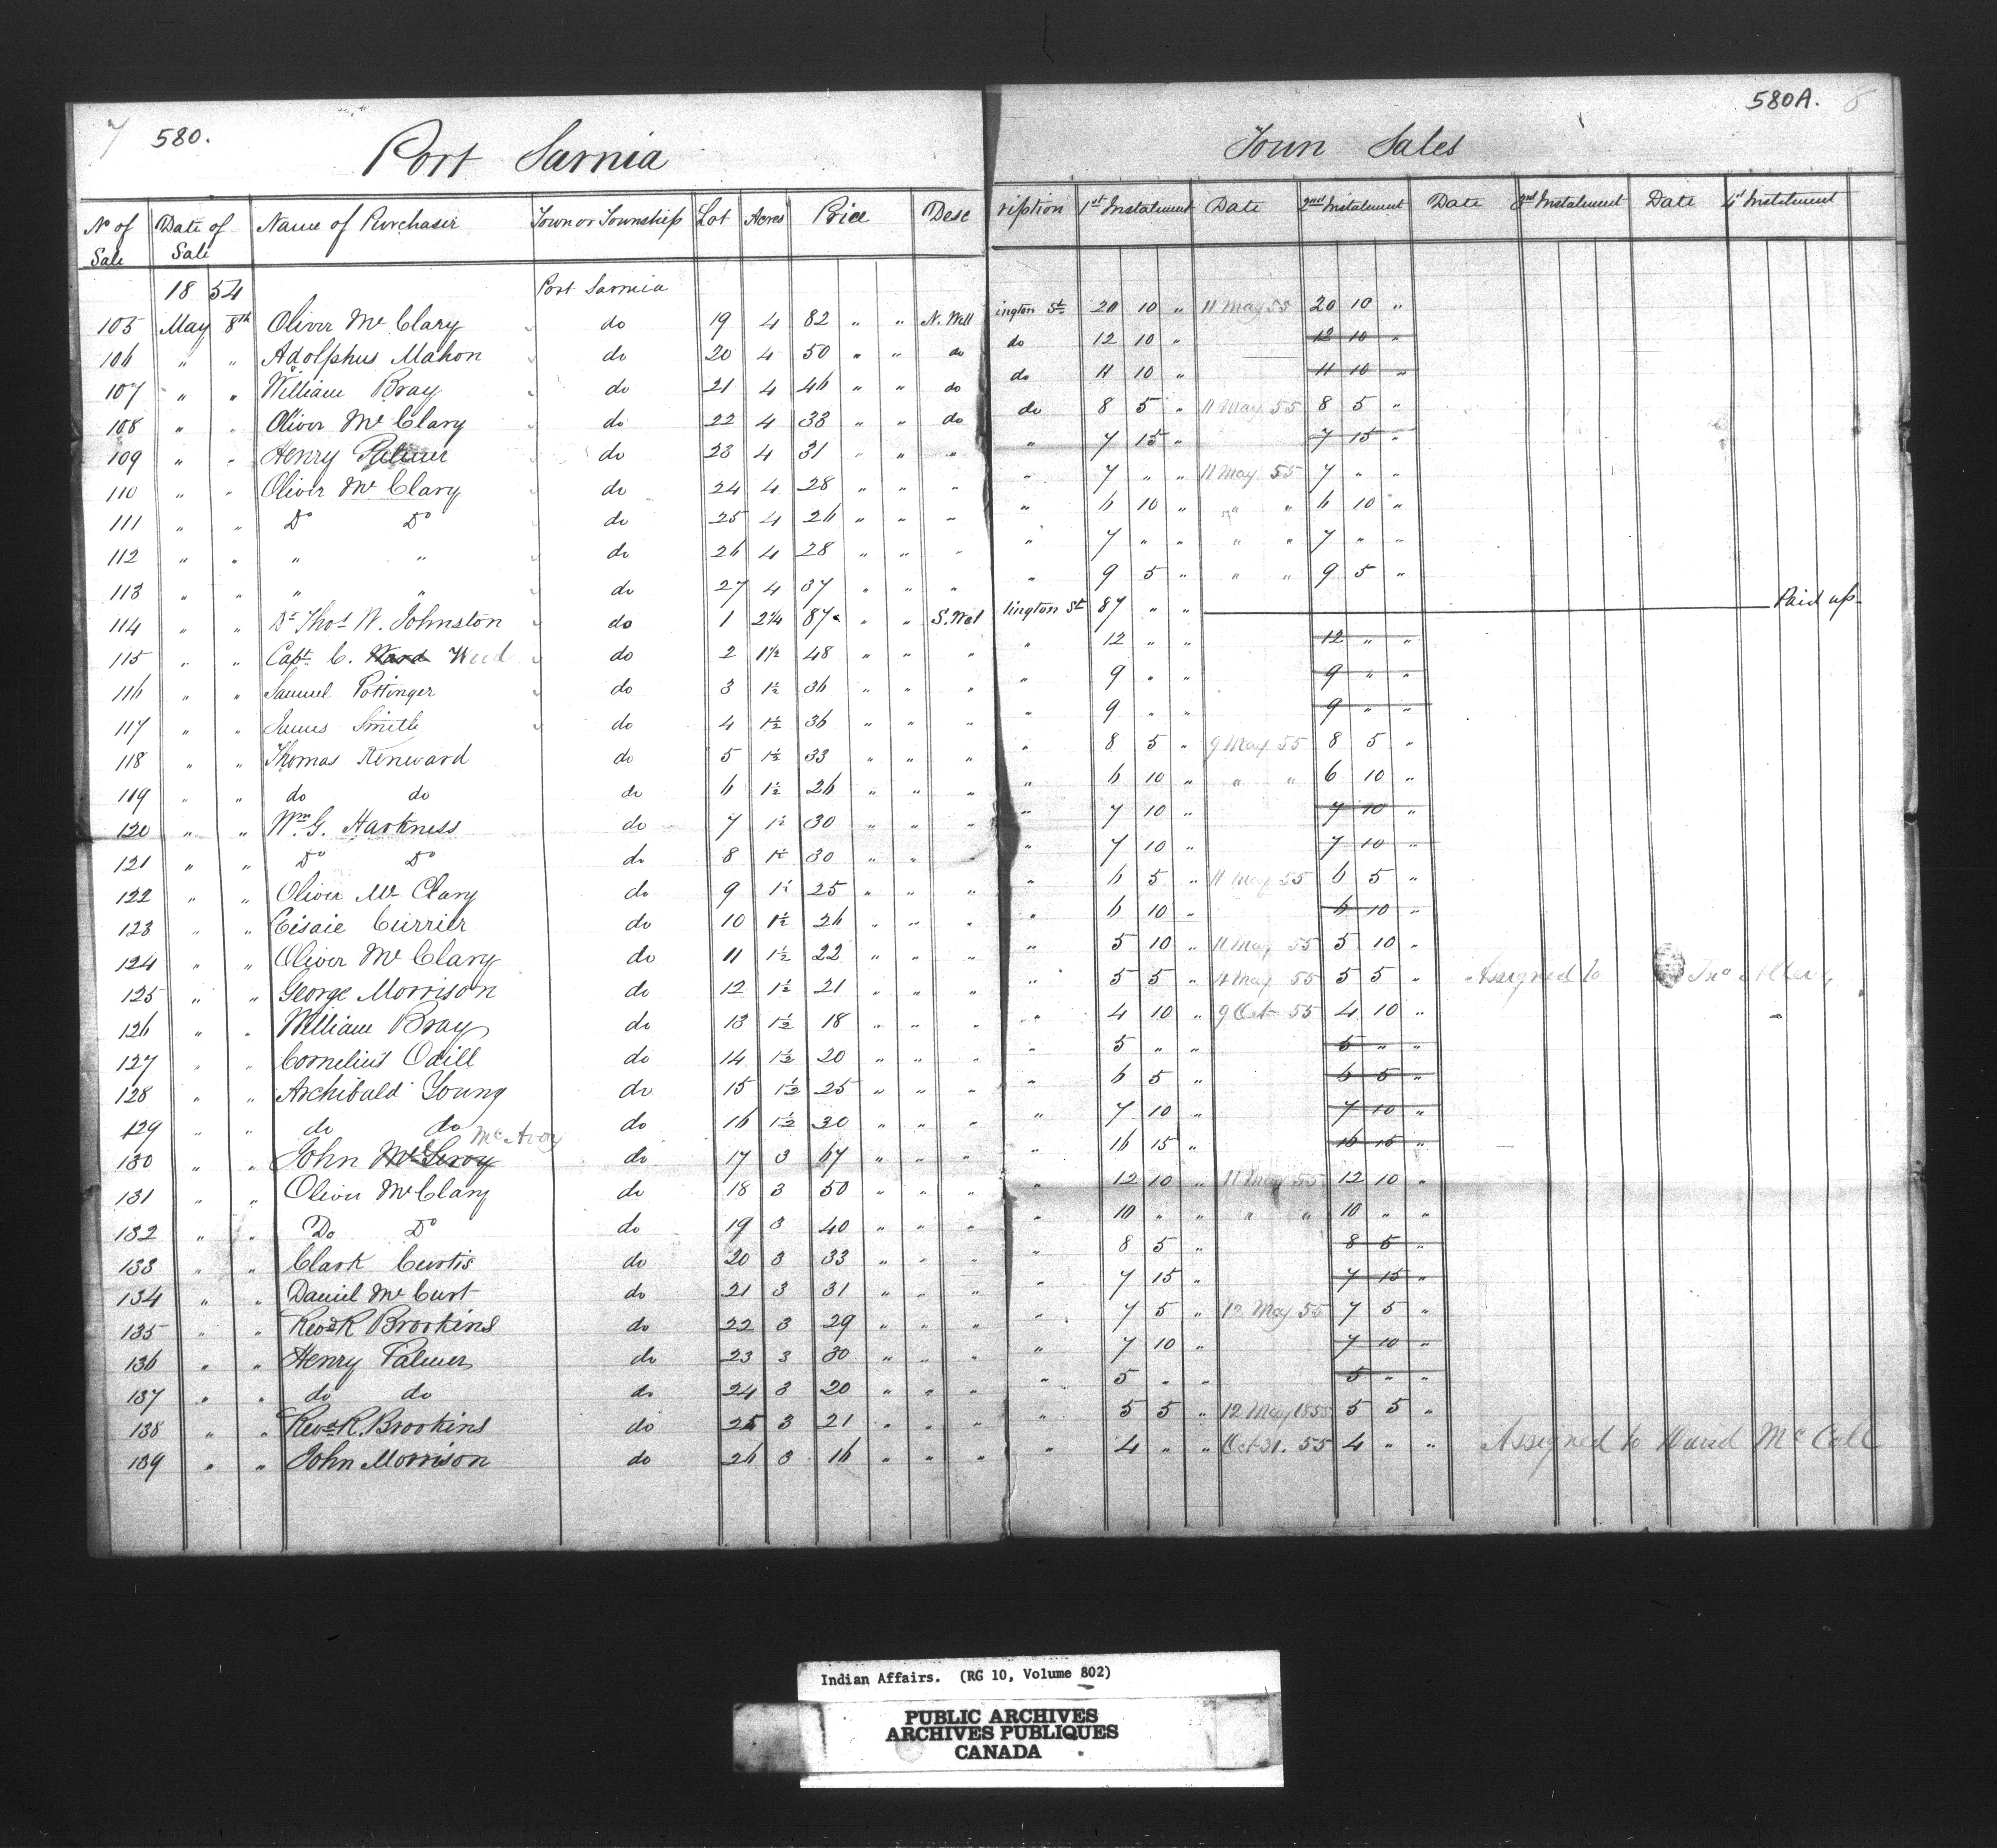 7 580. 580A. 8
Port Sarnia Town Sales
No of Sale Date of Sale Name of Purchaser Town or Township Lot Acres Price Desc ription 1st Instalment Date 2nd Instalment Date 3rd Instalment Date 4t Instalment
18 54 Port Sarnia
105 May 8th Oliver Mc Clary do 19 4 82 " " N. Well ington St 20 10 " 11 May 55 20 10 "
106 " " Adolphus Mahon do 20 4 50 " " do do 12 10 " 12 10 "
107 " " William Bray do 21 4 46 " " do do 11 10 " 11 10 "
108 " " Oliver Mc Clary do 22 4 33 " " do do 8 5 " 11 May 55 8 5 "
109 " " Henry Palmer do 23 4 31 " " " " 7 15 " 7 15 "
110 " " Oliver Mc Clary do 24 4 28 " " " " 7 " " 11 May 55 7 " "
111 " " Do Do do 25 4 26 " " " " 6 10 " " " 6 10 "
112 " " " " do 26 4 28 " " " " 7 " " " " 7 " "
113 " " " " do 27 4 37 " " " " 9 5 " " " 9 5 "
114 " " Dr Thos W. Johnston do 1 2¼ 87 " " S. Wel lington St 87 " " Paid up
115 " " Capt. C. Ward Weed do 2 1½ 48 " " " " 12 " " 12 " "
116 " " Samuel Pottinger do 3 1½ 36 " " " " 9 " " 9 " "
117 " " James Smith do 4 1½ 36 " " " " 9 " " 9 " "
118 " " Thomas Kenward do 5 1½ 33 " " " " 8 5 " 9 May 55 8 5 "
119 " " do do do 6 1½ 26 " " " " 6 10 " " " 6 10 "
120 " " Wm G. Harkness do 7 1½ 30 " " " " 7 10 " 7 10 "
121 " " Do Do do 8 1½ 30 " " " " 7 10 " 7 10 "
122 " " Oliver Mc Clary do 9 1½ 25 " " " " 6 5 " 11 May 55 6 5 "
123 " " Eisaie Currier do 10 1½ 26 " " " " 6 10 " 6 10 "
124 " " Oliver Mc Clary do 11 1½ 22 " " " " 5 10 " 11 May 55 5 10 "
125 " " George Morrison do 12 1½ 21 " " " " 5 5 " 11 May 55 5 5 " Assigned to Jno Allen
126 " " William Bray do 13 1½ 18 " " " " 4 10 " 9 Oct 55 4 10 "
127 " " Cornelius Odill do 14 1½ 20 " " " " 5 " " 5 " "
128 " " Archibald Young do 15 1½ 25 " " " " 6 5 " 6 5 "
129 " " do do do 16 1½ 30 " " " " 7 10 " 7 10 "
130 " " John McLeroy Mc Avoy do 17 3 67 " " " " 16 15 " 16 15 "
131 " " Oliver Mc Clary do 18 3 50 " " " " 12 10 " 11 May 55 12 10 "
132 " " Do Do do 19 3 40 " " " " 10 " " " " 10 " "
133 " " Clark Curtis do 20 3 33 " " " " 8 5 " 8 5 "
134 " " Daniel Mc Curt do 21 3 31 " " " " 7 15 " 7 15 "
135 " " Revd R Brookins do 22 3 29 " " " " 7 5 " 12 May 55 7 5 "
136 " " Henry Palmer do 23 3 30 " " " " 7 10 " 7 10 "
137 " " do do do 24 3 20 " " " " 5 " " 5 " "
138 " " Revd R. Brookins do 25 3 21 " " " " 5 5 " 12 May 1855 5 5 "
139 " " John Morrison do 26 3 16 " " " " 4 " " Oct 31. 55 4 " " Assigned to David Mc Call
Indian Affairs. (RG 10, Volume 802)
PUBLIC ARCHIVES
ARCHIVES PUBLIQUES
CANADA